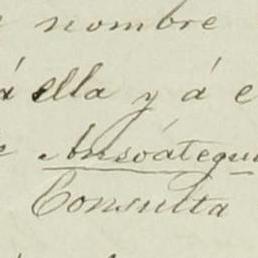 nombre
á ella y á e
Ansoátegui
Consulta